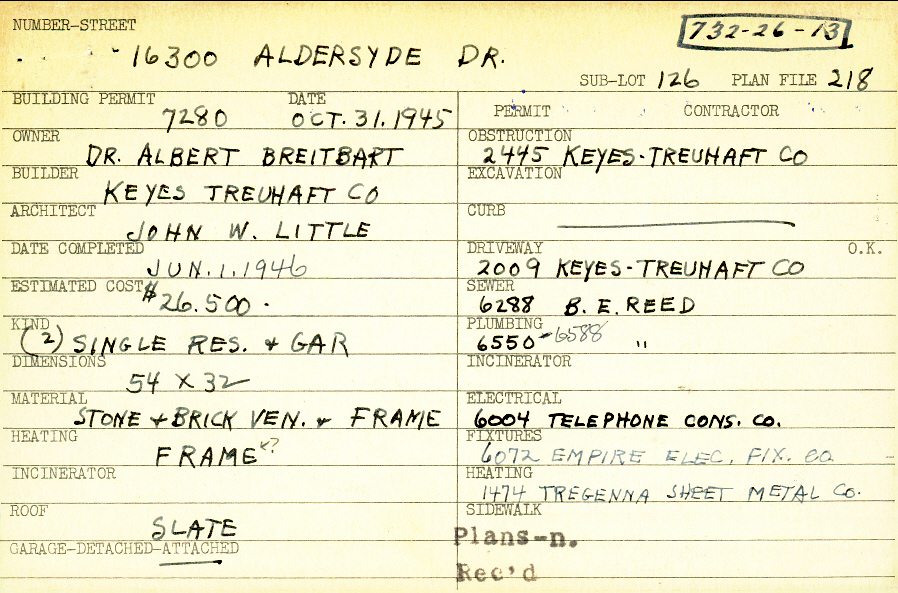 NUMBER-STREET
732-26-13
16300 ALDERSYDE DR.
SUB-LOT 126 PLAN FILE 218
BUILDING PERMIT DATE
7280 OCT. 31. 1945
OWNER
DR. ALBERT BREITBART
BUILDER
KEYES TREUHAFT CO
ARCHITECT
JOHN W. LITTLE
DATE COMPLETED
JUN. 1. 1946
ESTIMATED COST
$26.500.
KIND
(2) SINGLE RES. & GAR
DIMENSIONS
54 X 32
MATERIAL
STONE & BRICK VEN. & FRAME
HEATING
FRAME ?
INCINERATOR
ROOF
SLATE
GARAGE-DETACHED-ATTACHED
PERMIT CONTRACTOR
OBSTRUCTION
2445 KEYES-TREUHAFT CO
EXCAVATION
CURB
DRIVEWAY O.K.
2009 KEYES-TREUHAFT CO
SEWER
6288 B. E. REED
PLUMBING
6550-6588 "
INCINERATOR
ELECTRICAL
6004 TELEPHONE CONS. CO.
FIXTURES
6072 EMPIRE ELEC. FIX. CO
HEATING
1474 TREGENNA SHEET METAL CO.
SIDEWALK
Plans-n.
Rec'd